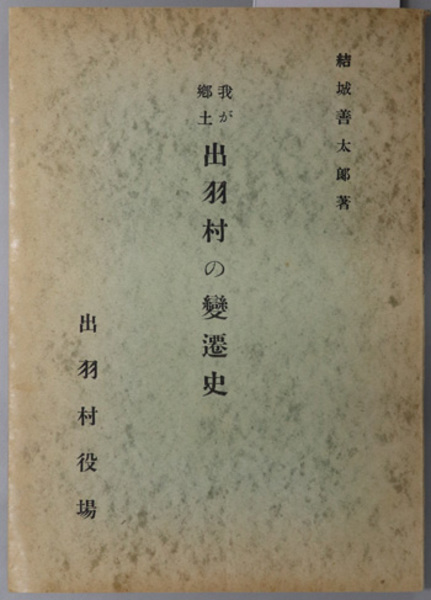 結城善太郎著
我が
郷土
出羽村の變遷史
出羽村役場